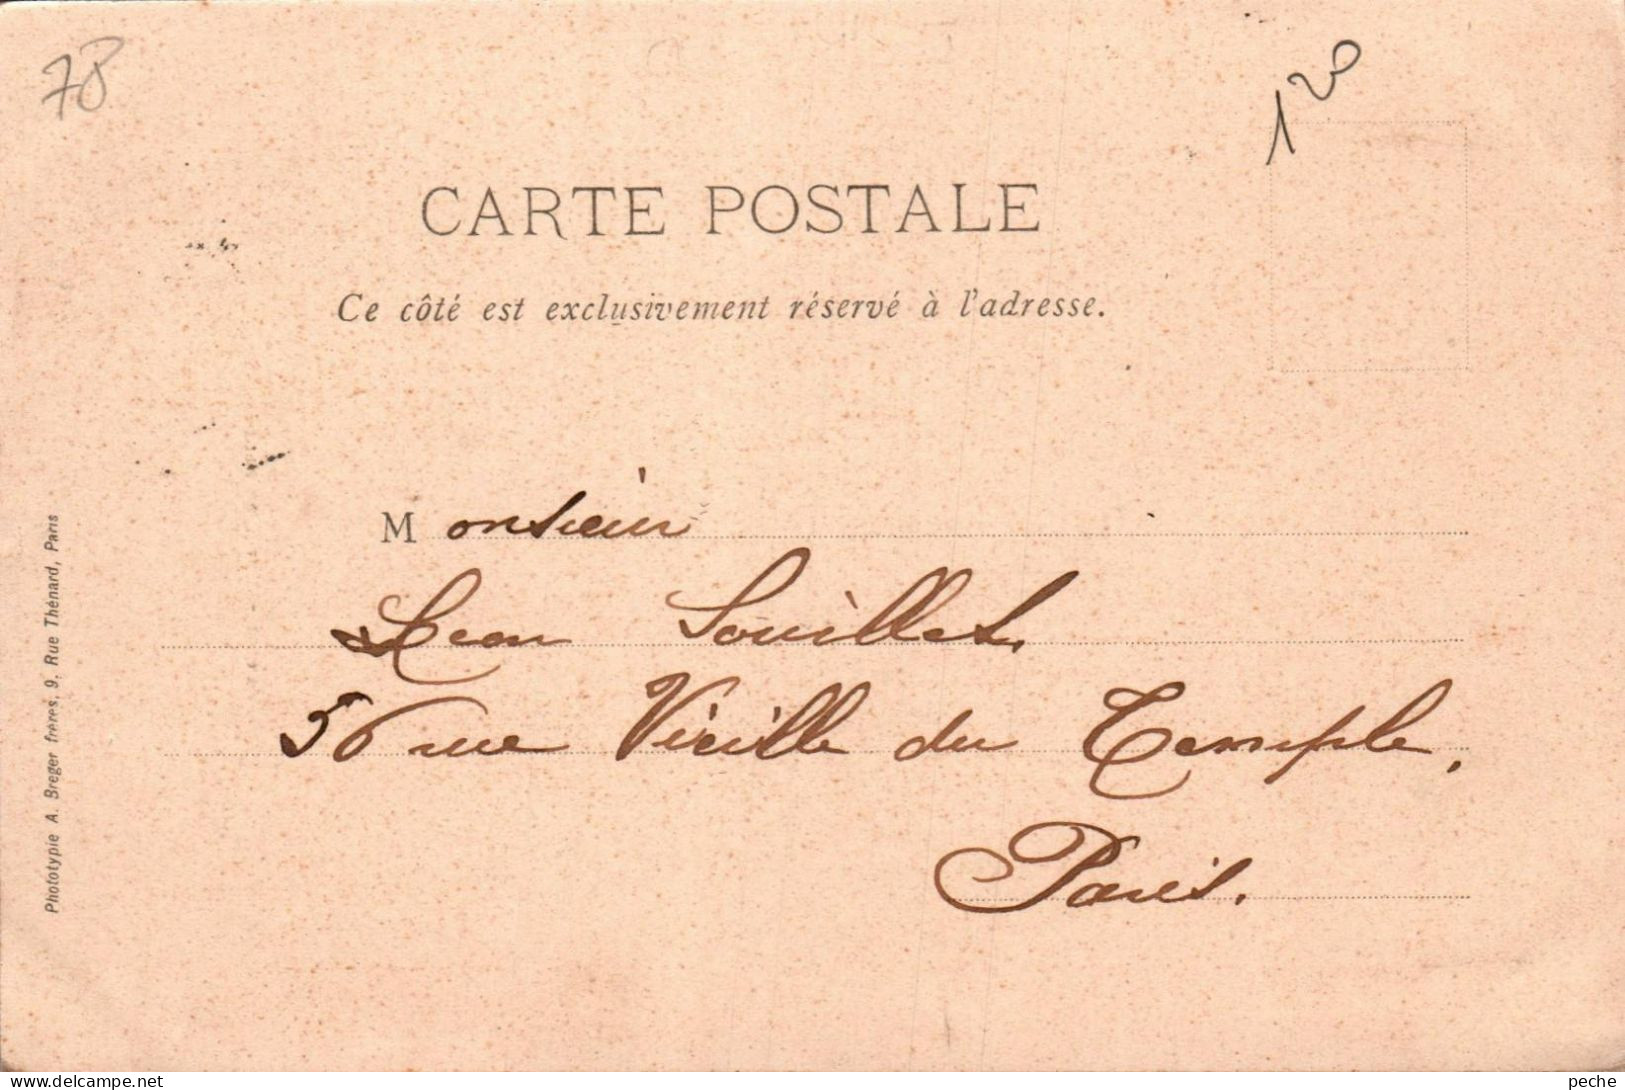 78
120
CARTE POSTALE
Ce côté est exclusivement réservé à l'adresse.
Monsieur
Leon Souillet.
56 rue Vieille du Temple,
Paris.
Phototypie A. Breger frères, 9. Rue Thénard, Paris
www.delcampe.net
peche